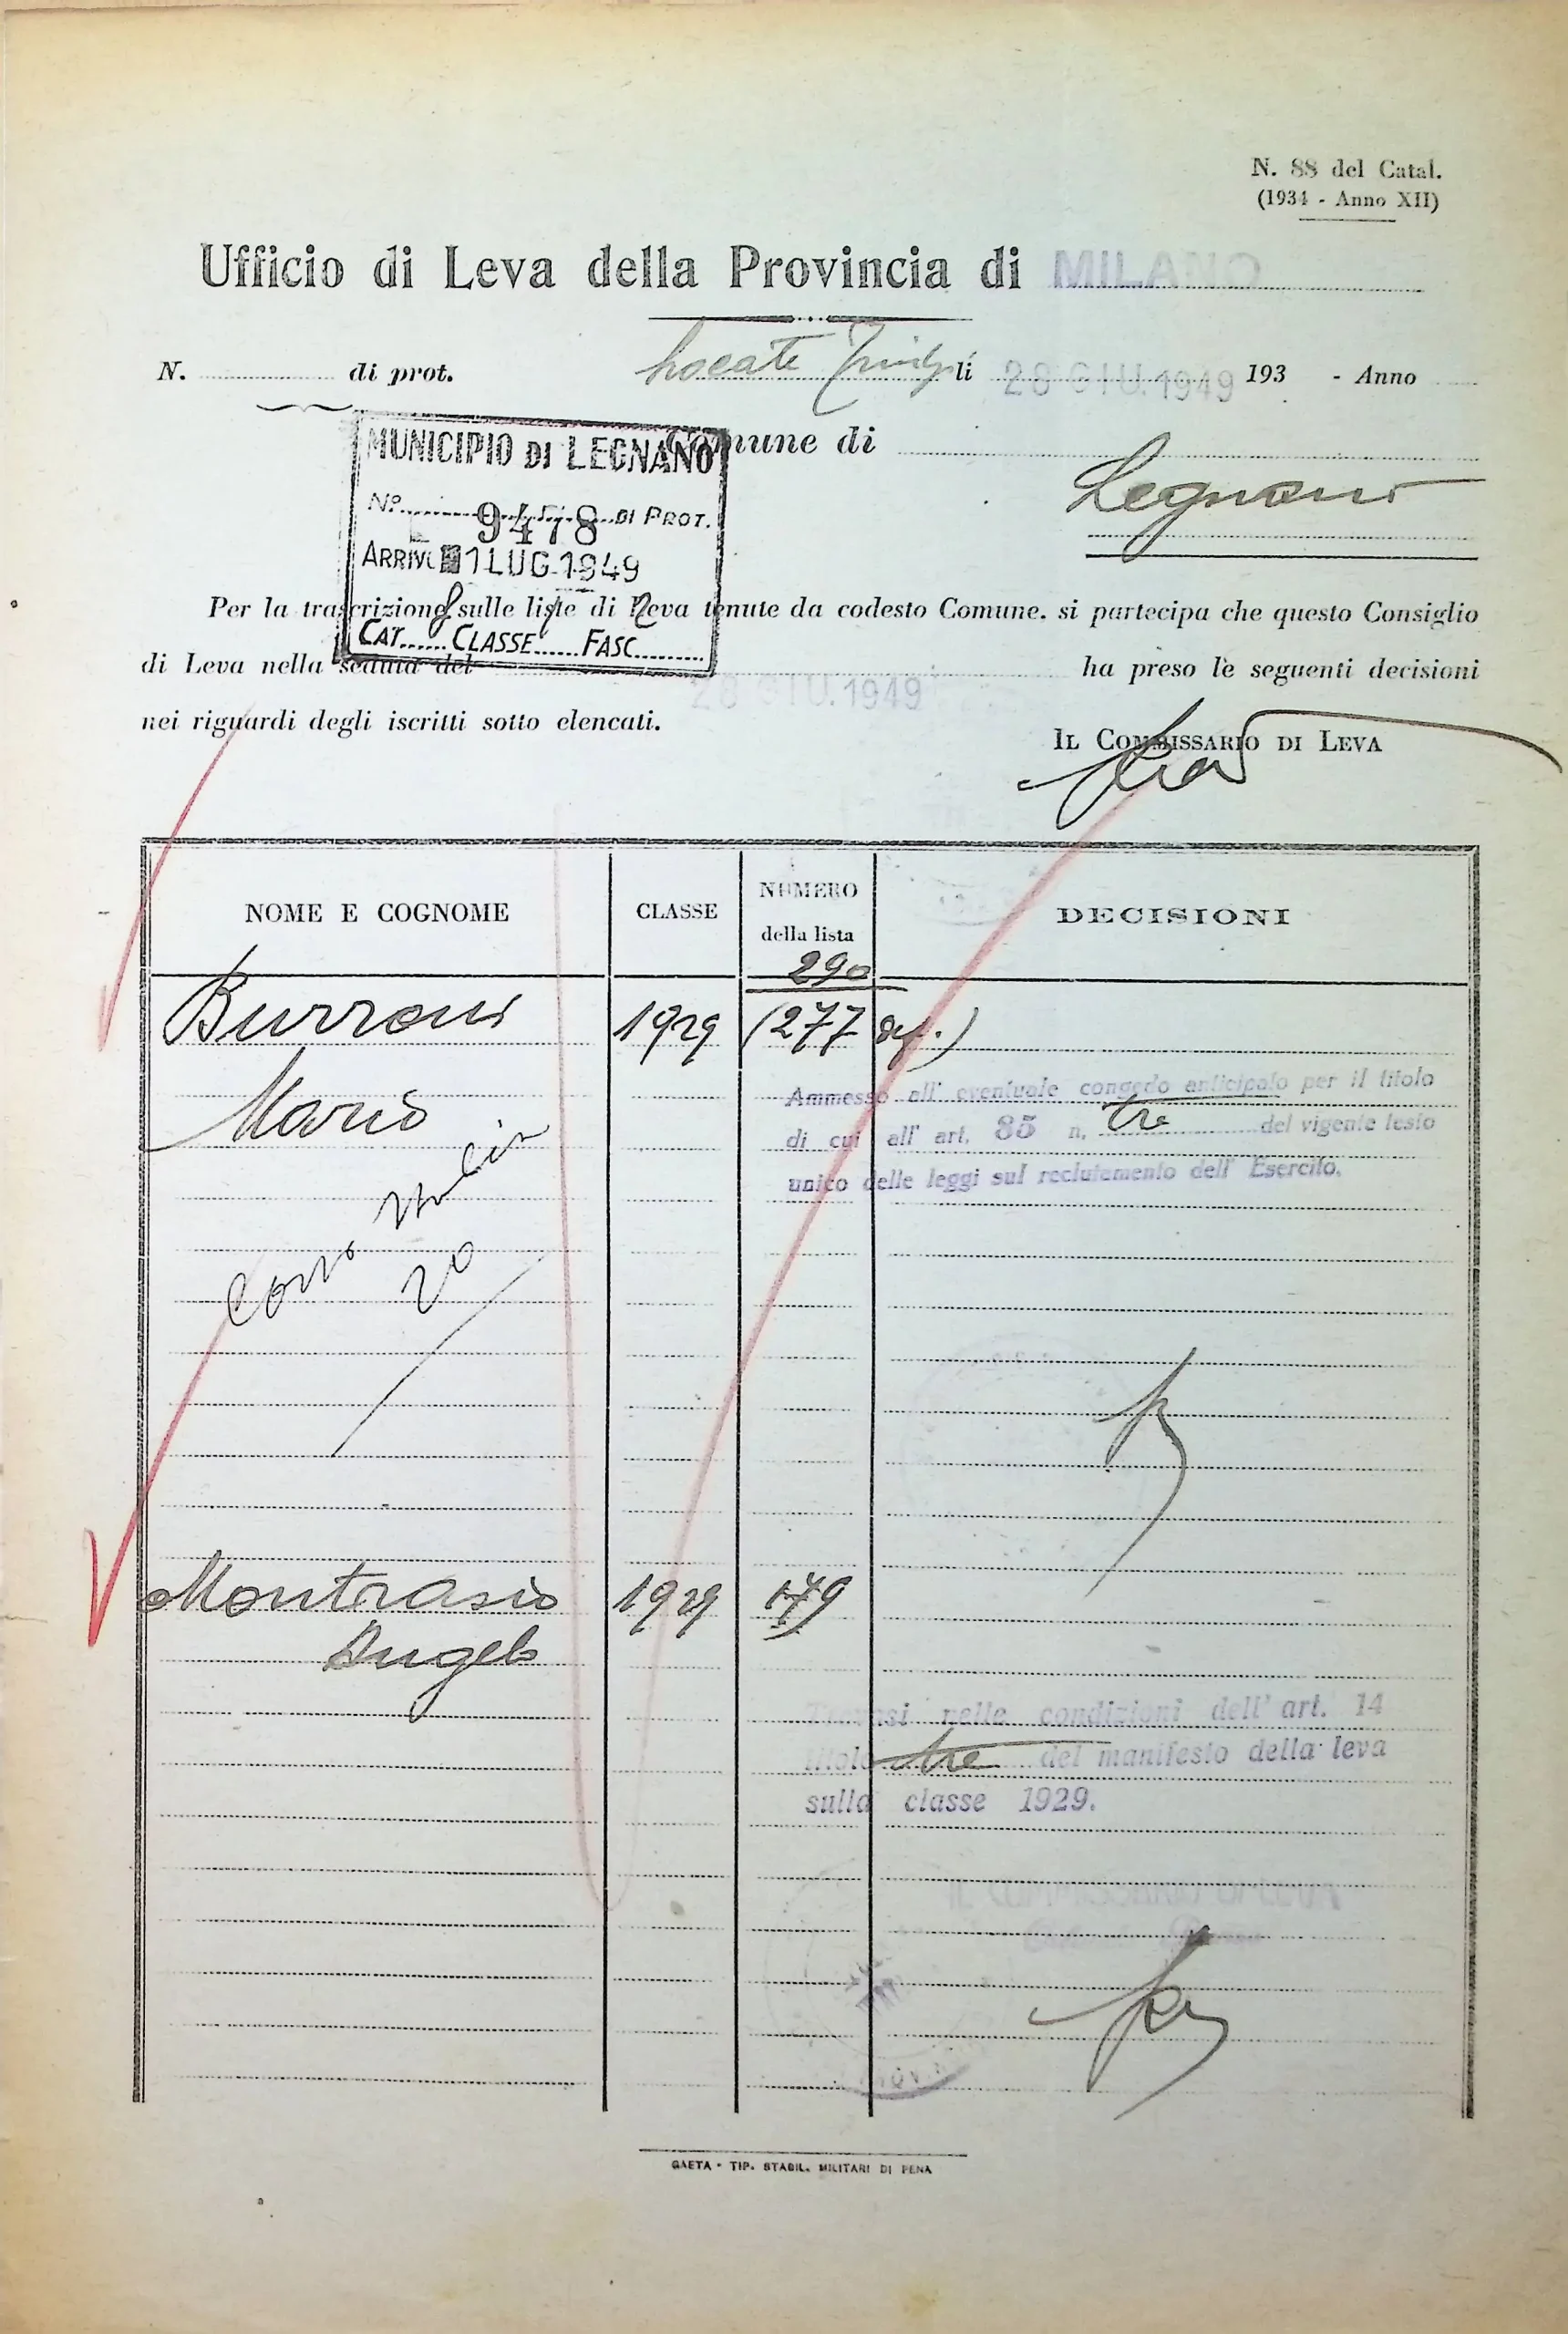 N. 88 del Catal.
(1934 - Anno XII)
Ufficio di Leva della Provincia di MILANO
N. di prot. Locate Triulzi li 28 GIU. 1949 193 - Anno
MUNICIPIO DI LEGNANO
Comune di
Legnano
No. 9478 DI PROT.
ARRIVO 1 LUG 1949
CAT. 8 CLASSE 1 FASC. 2
Per la trascrizione sulle liste di leva tenute da codesto Comune. si partecipa che questo Consiglio
di Leva nella seduta del 28 GIU. 1949 ha preso le seguenti decisioni
nei riguardi degli iscritti sotto elencati.
IL COMMISSARIO DI LEVA
NOME E COGNOME CLASSE NUMERO della lista DECISIONI
290
Burroni 1929 (277 def.)
Mario
Ammesso all' eventuale congedo anticipato per il titolo
di cui all' art. 85 n. tre del vigente testo
unico delle leggi sul reclutamento dell' Esercito.
Corso Italia
20
Montrasio 1929 149
Angelo
Trovasi nelle condizioni dell' art. 14
titolo tre del manifesto della leva
sulla classe 1929.
IL COMMISSARIO DI LEVA
GAETA - TIP. STABIL. MILITARI DI PENA